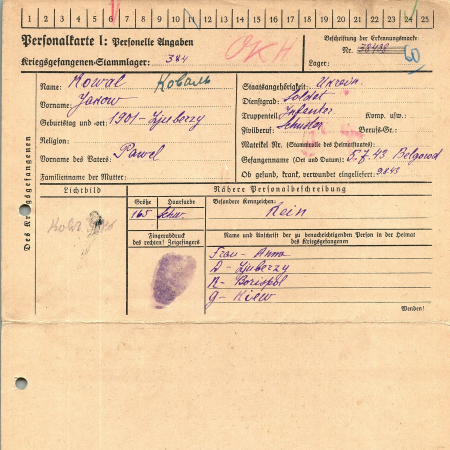 1 2 3 4 5 6 7 8 9 10 11 12 13 14 15 16 17 18 19 20 21 22 23 24 25
Personalkarte I: Personelle Angaben
Kriegsgefangenen-Stammlager: 384
OKH
Beschriftung der Erkennungsmarke
Nr. 38438
60
Lager:
Des Kriegsgefangenen
Name: Kowal Коваль
Vorname: Jakow
Geburtstag und -ort: 1901 - Ljuberzy
Religion:
Vorname des Vaters: Pawel
Familienname der Mutter:
Staatsangehörigkeit: Ukrain.
Dienstgrad: Soldat
Truppenteil: Infanter. Komp. usw.:
Zivilberuf: Schuster Berufs-Gr.:
Matrikel Nr. (Stammrolle des Heimatstaates):
Gefangennahme (Ort und Datum): 5.7.43 Belgorod
Ob gesund, krank, verwundet eingeliefert:
Lichtbild
Nähere Personalbeschreibung
Größe Haarfarbe Besondere Kennzeichen:
165 schw. Kein
Fingerabdruck
des rechten! Zeigefingers
Name und Anschrift der zu benachrichtigenden Person in der Heimat
des Kriegsgefangenen
Frau - Anna
D - Ljuberzy
R - Borispol
G - Kiew
Wenden!